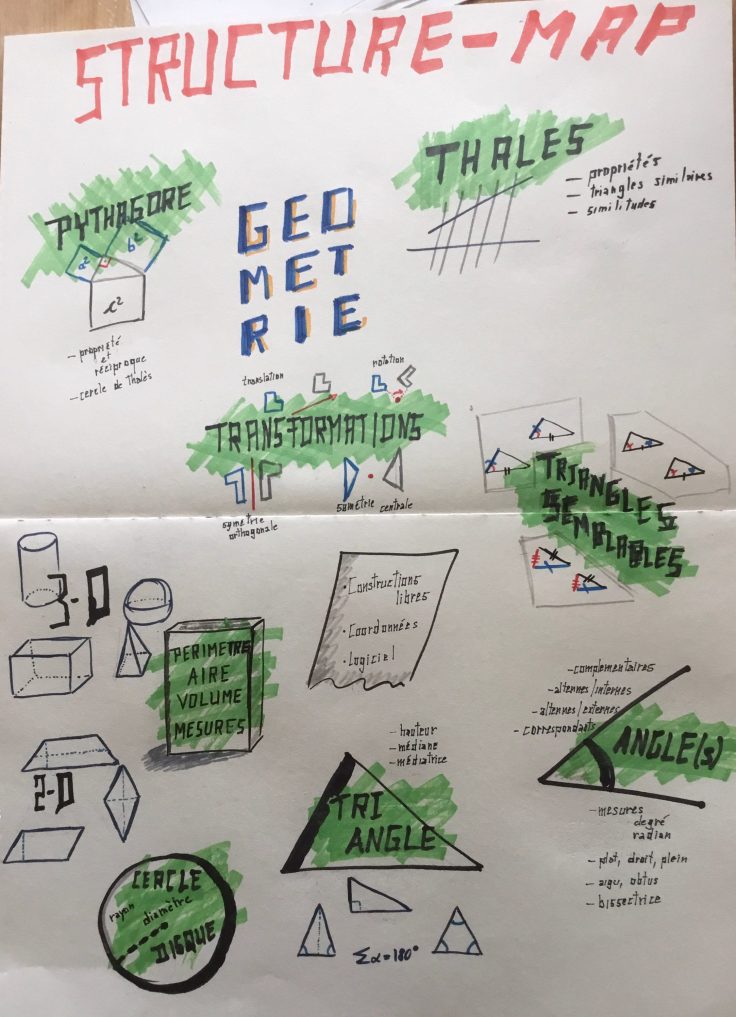 STRUCTURE-MAP
THALES
- propriétés
- triangles similaires
- similitudes
PYTHAGORE
a²
b²
c²
- propriété
et
réciproque
- cercle de Thalès
GEO
MET
RIE
translation
rotation
TRANSFORMATIONS
symetrie
orthogonale
symetrie centrale
TRIANGLES
SEMBLABLES
3-D
PERIMETRE
AIRE
VOLUME
MESURES
· Constructions
libres
· Coordonnées
· Logiciel
- complementaires
- alternes/internes
- alternes/externes
- correspondants
ANGLE(s)
- mesures
degré
radian
- plat, droit, plein
- aigu, obtus
- bissectrice
2-D
- hauteur
- médiane
- médiatrice
TRI
ANGLE
Σα=180°
CERCLE
rayon
diamètre
DISQUE